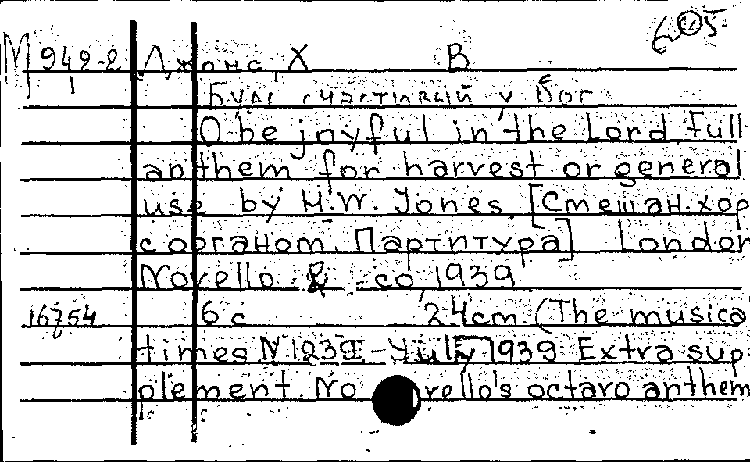 605
М 949-2 Джонс, Х В
1
Будь счастливый у Бог
O be joyful in the Lord. Full
anthem for harvest or general
use by H.W. Jones. [Смешан.хор
с органом. Партитура] London
Novello & co, 1939
16754 6 с 24cm (The musica
times N 1239 - July 1939 Extra sup
plement. No vello's octavo anthem